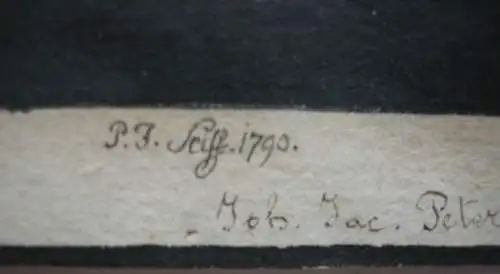 P. F. Seiff. 1790.
Joh. Jac. Peter